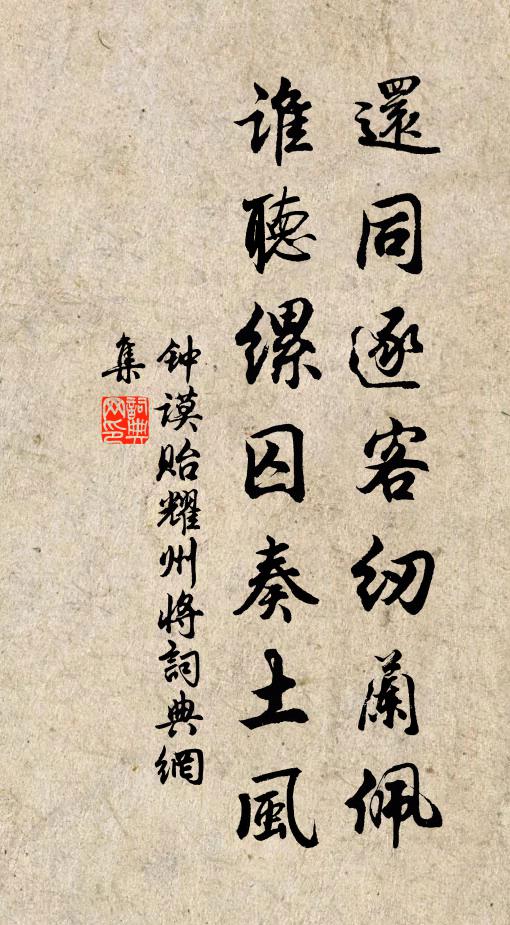 還同逐客紉蘭佩
誰聽縲囚奏土風
钟谟貽耀州將詞典網
集
詞典
网印